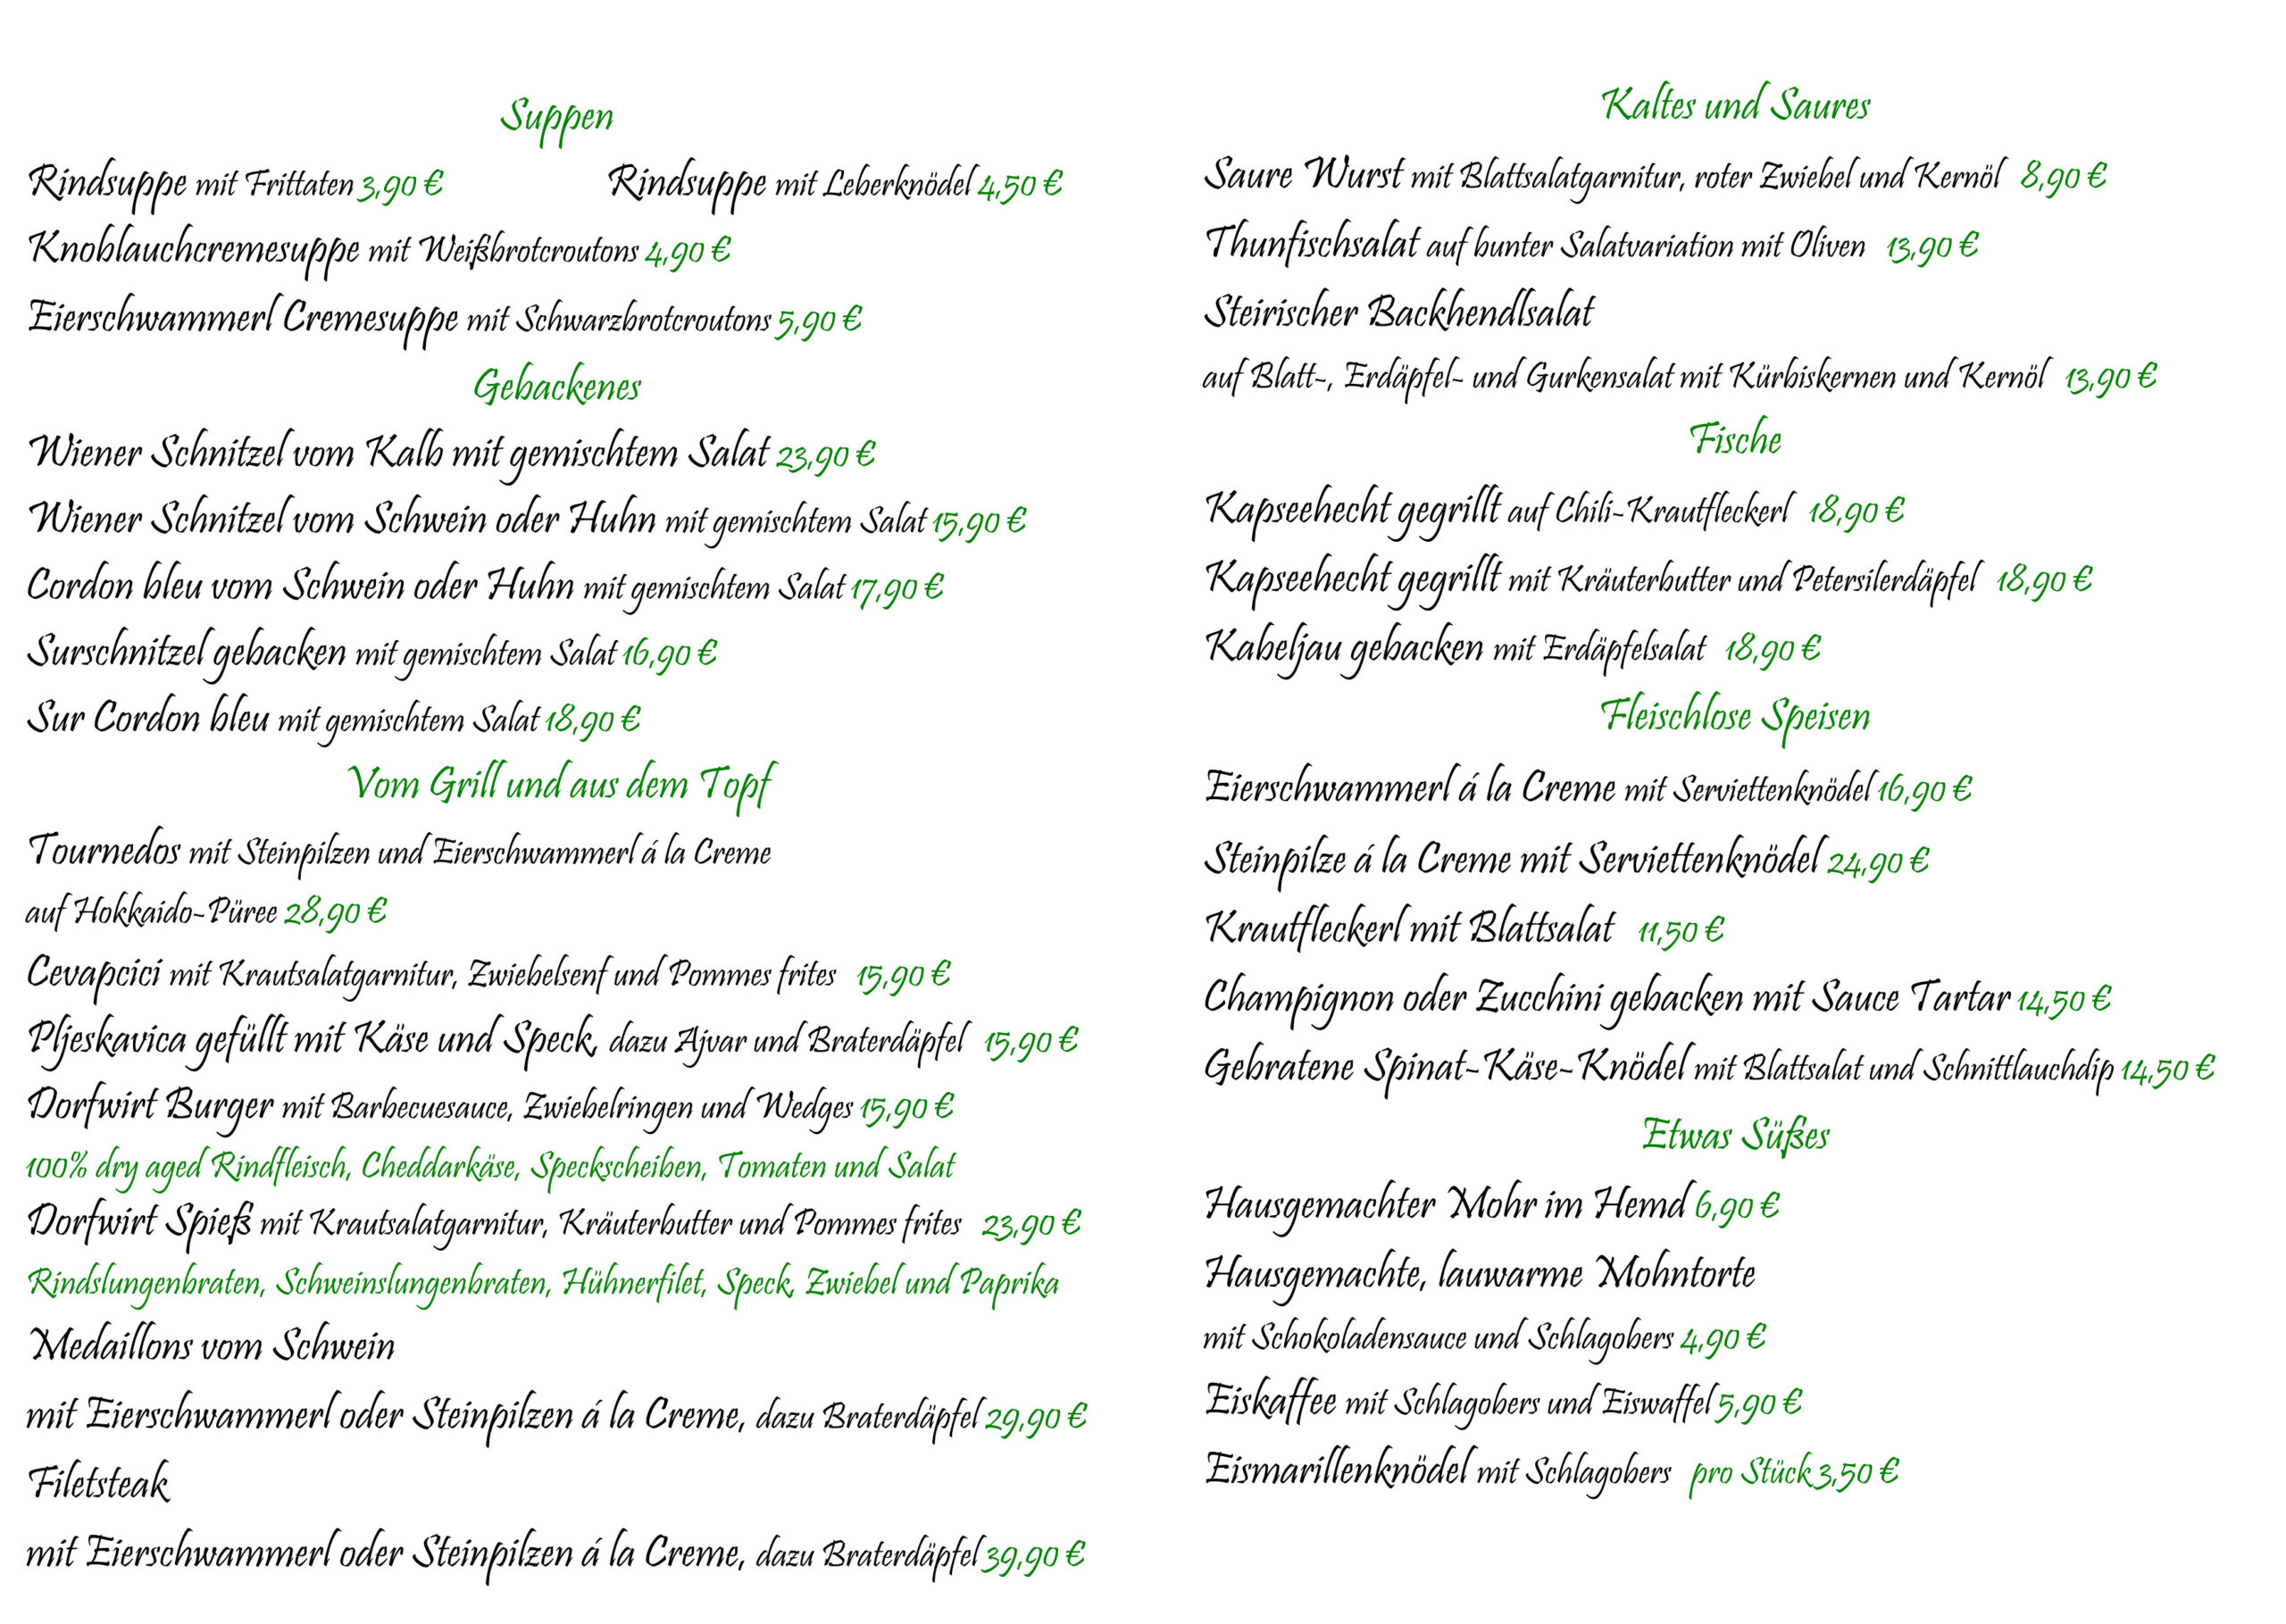 Suppen
Rindsuppe mit Frittaten 3,90 € Rindsuppe mit Leberknödel 4,50 €
Knoblauchcremesuppe mit Weißbrotcroutons 4,90 €
Eierschwammerl Cremesuppe mit Schwarzbrotcroutons 5,90 €
Gebackenes
Wiener Schnitzel vom Kalb mit gemischtem Salat 23,90 €
Wiener Schnitzel vom Schwein oder Huhn mit gemischtem Salat 15,90 €
Cordon bleu vom Schwein oder Huhn mit gemischtem Salat 17,90 €
Surschnitzel gebacken mit gemischtem Salat 16,90 €
Sur Cordon bleu mit gemischtem Salat 18,90 €
Vom Grill und aus dem Topf
Tournedos mit Steinpilzen und Eierschwammerl á la Creme
auf Hokkaido-Püree 28,90 €
Cevapcici mit Krautsalatgarnitur, Zwiebelsenf und Pommes frites 15,90 €
Pljeskavica gefüllt mit Käse und Speck, dazu Ajvar und Braterdäpfel 15,90 €
Dorfwirt Burger mit Barbecuesauce, Zwiebelringen und Wedges 15,90 €
100% dry aged Rindfleisch, Cheddarkäse, Speckscheiben, Tomaten und Salat
Dorfwirt Spieß mit Krautsalatgarnitur, Kräuterbutter und Pommes frites 23,90 €
Rindslungenbraten, Schweinslungenbraten, Hühnerfilet, Speck, Zwiebel und Paprika
Medaillons vom Schwein
mit Eierschwammerl oder Steinpilzen á la Creme, dazu Braterdäpfel 29,90 €
Filetsteak
mit Eierschwammerl oder Steinpilzen á la Creme, dazu Braterdäpfel 39,90 €
Kaltes und Saures
Saure Wurst mit Blattsalatgarnitur, roter Zwiebel und Kernöl 8,90 €
Thunfischsalat auf bunter Salatvariation mit Oliven 13,90 €
Steirischer Backhendlsalat
auf Blatt-, Erdäpfel- und Gurkensalat mit Kürbiskernen und Kernöl 13,90 €
Fische
Kapseehecht gegrillt auf Chili-Krautfleckerl 18,90 €
Kapseehecht gegrillt mit Kräuterbutter und Petersilerdäpfel 18,90 €
Kabeljau gebacken mit Erdäpfelsalat 18,90 €
Fleischlose Speisen
Eierschwammerl á la Creme mit Serviettenknödel 16,90 €
Steinpilze á la Creme mit Serviettenknödel 24,90 €
Krautfleckerl mit Blattsalat 11,50 €
Champignon oder Zucchini gebacken mit Sauce Tartar 14,50 €
Gebratene Spinat-Käse-Knödel mit Blattsalat und Schnittlauchdip 14,50 €
Etwas Süßes
Hausgemachter Mohr im Hemd 6,90 €
Hausgemachte, lauwarme Mohntorte
mit Schokoladensauce und Schlagobers 4,90 €
Eiskaffee mit Schlagobers und Eiswaffel 5,90 €
Eismarillenknödel mit Schlagobers pro Stück 3,50 €